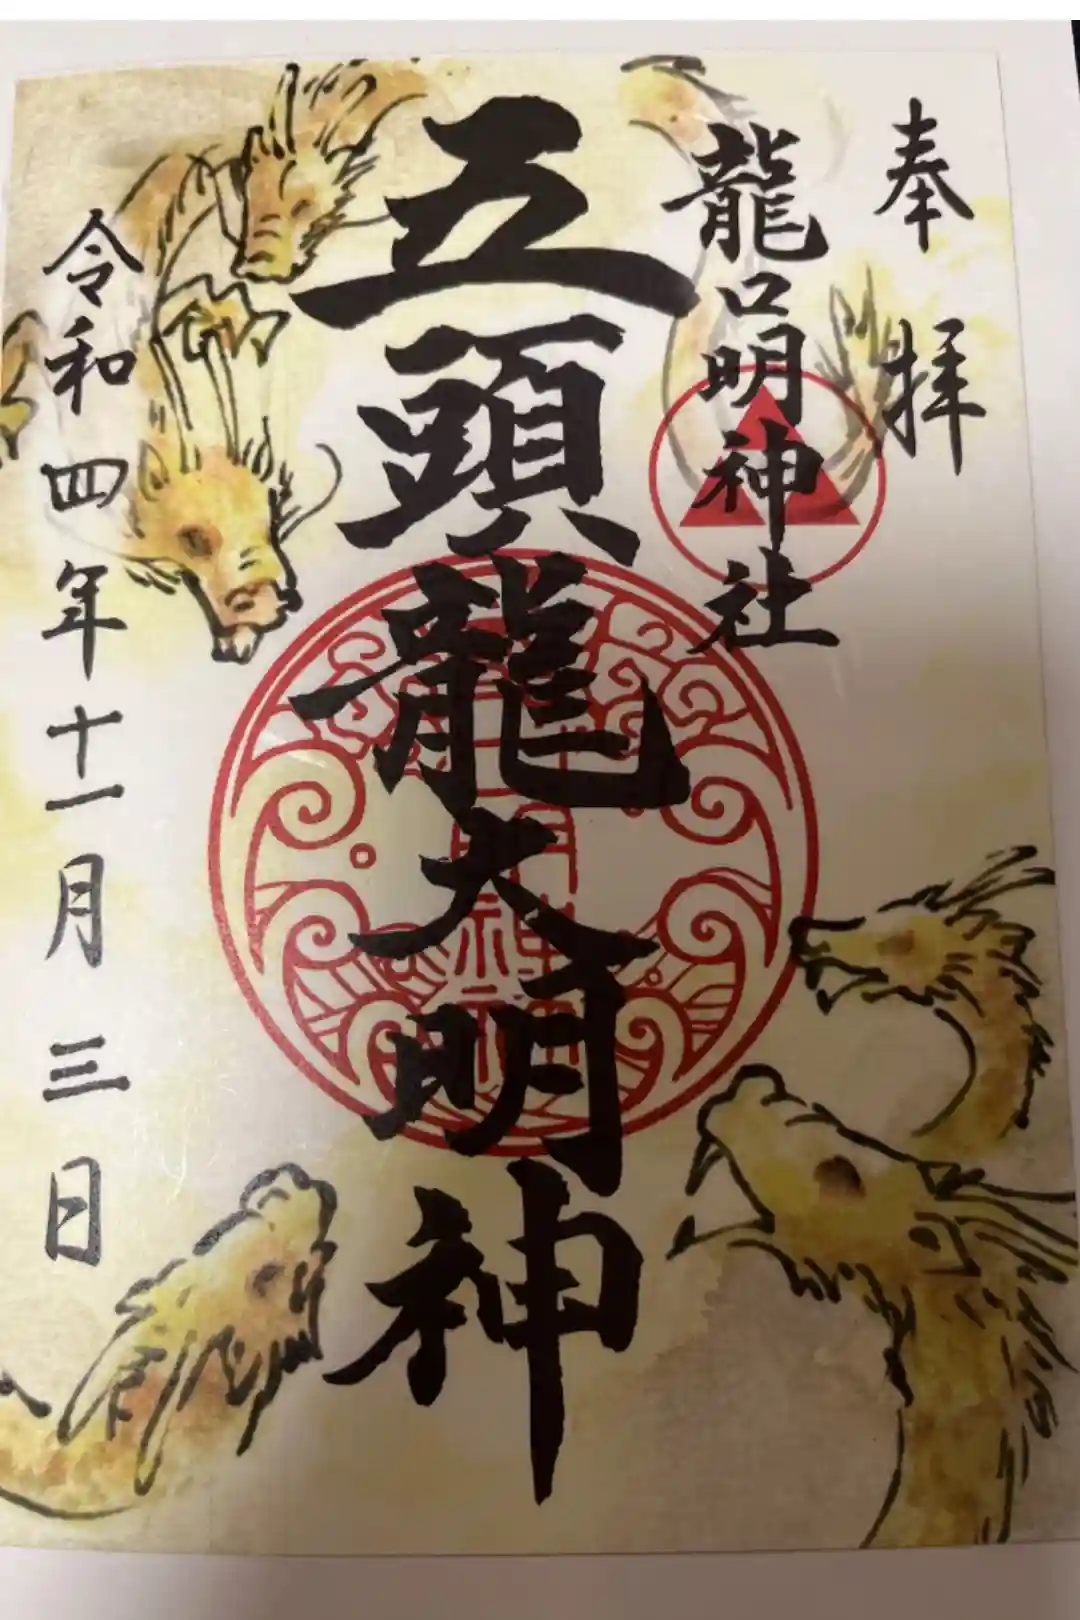 奉拝
龍口明神社
五頭龍大明神
令和四年十一月三日